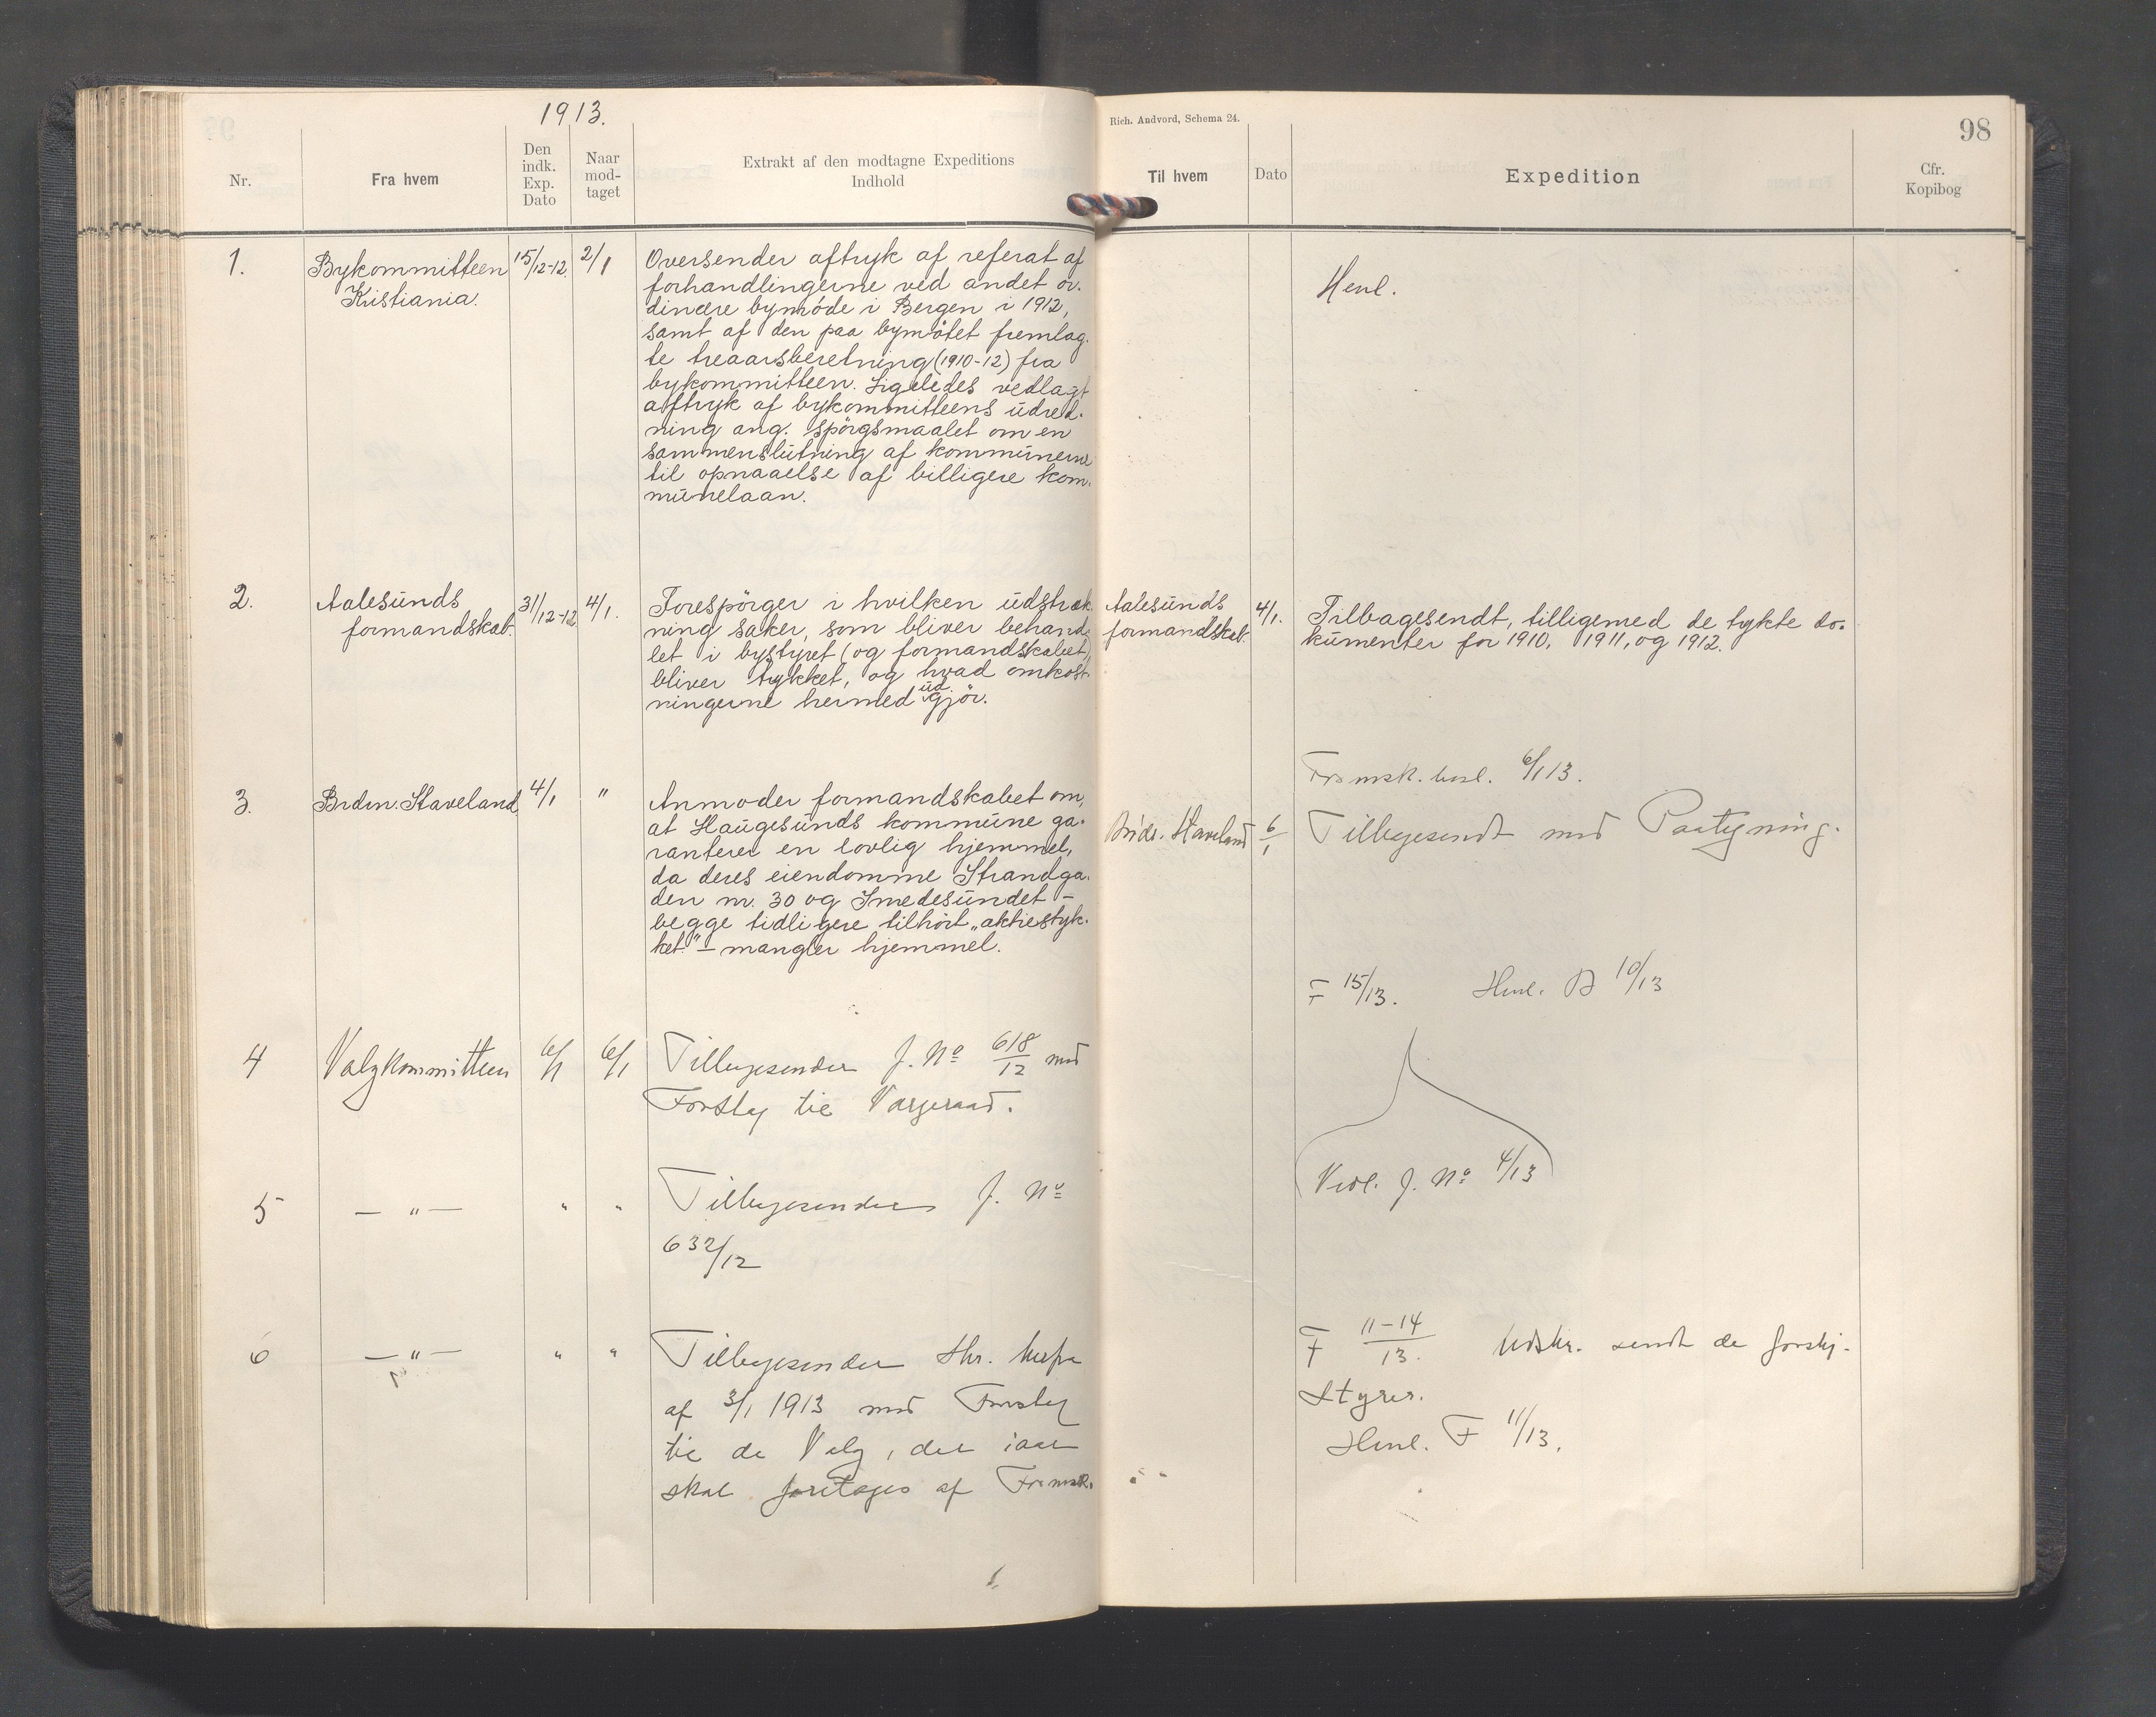 1913.
Rich. Andvord, Schema 24.
98
Nr.
Fra hvem
Den indk. Exp. Dato
Naar mod-taget
Extrakt af den modtagne Expeditions Indhold
Til hvem
Dato
Expedition
Cfr. Kopibog
1.
Bykommitteen
Kristiania.
15/12-12.
2/1
Oversender aftryk af referat af
forhandlingerne ved andet or-
dinære bymöde i Bergen i 1912,
samt af den paa bymötet fremlag-
te treaarsberetning (1910-12) fra
bykommitteen. Ligeledes vedlagt
aftryk af bykommitteens udred-
ning ang. spörgsmaalet om en
sammenslutning af kommunerne
til opnaaelse af billigere kom-
munelaan.
Henl.
2.
Aalesunds
formandskab.
31/12-12
4/1.
Forespörger i hvilken udstræk-
ning saker, som bliver behand-
let i bystyret (og formandskabet),
bliver trykket, og hvad omkost-
ningerne hermed udgjör.
Aalesunds
formandskab.
4/1.
Tilbagesendt, tilligemed de trykte do-
kumenter for 1910, 1911, og 1912.
3.
Brdr. Staveland,
4/1
"
Anmoder formandskabet om,
at Haugesunds kommune ga-
ranterer en lovlig hjemmel,
da deres eiendomme Strandga-
den nr. 30 og Smedesundet –
begge tidligere tilhört „aktiestyk-
ket" – mangler hjemmel.
Formsk. besl. 6/1 13.
Brdr. Staveland
6/1
Tilbagesendt med Paategning.
4
Valgkommitteen
6/1
6/1
Tilbagesender J. No 618/12 med
Forslag til Vergeraad.
F 15/13. Henl. B 10/13
5
— " —
"
"
Tilbagesender J. No
632/12
Vedl. J. No 4/13
6
— " —
"
"
Tilbagesender Skr.
af 3/1 1913 med Forslag
til de Valg, der iaar
skal foretages af Formsk.
F 11-14/13. Udskr. sendt de forskj.
Styrer.
Henl. F 11/13.